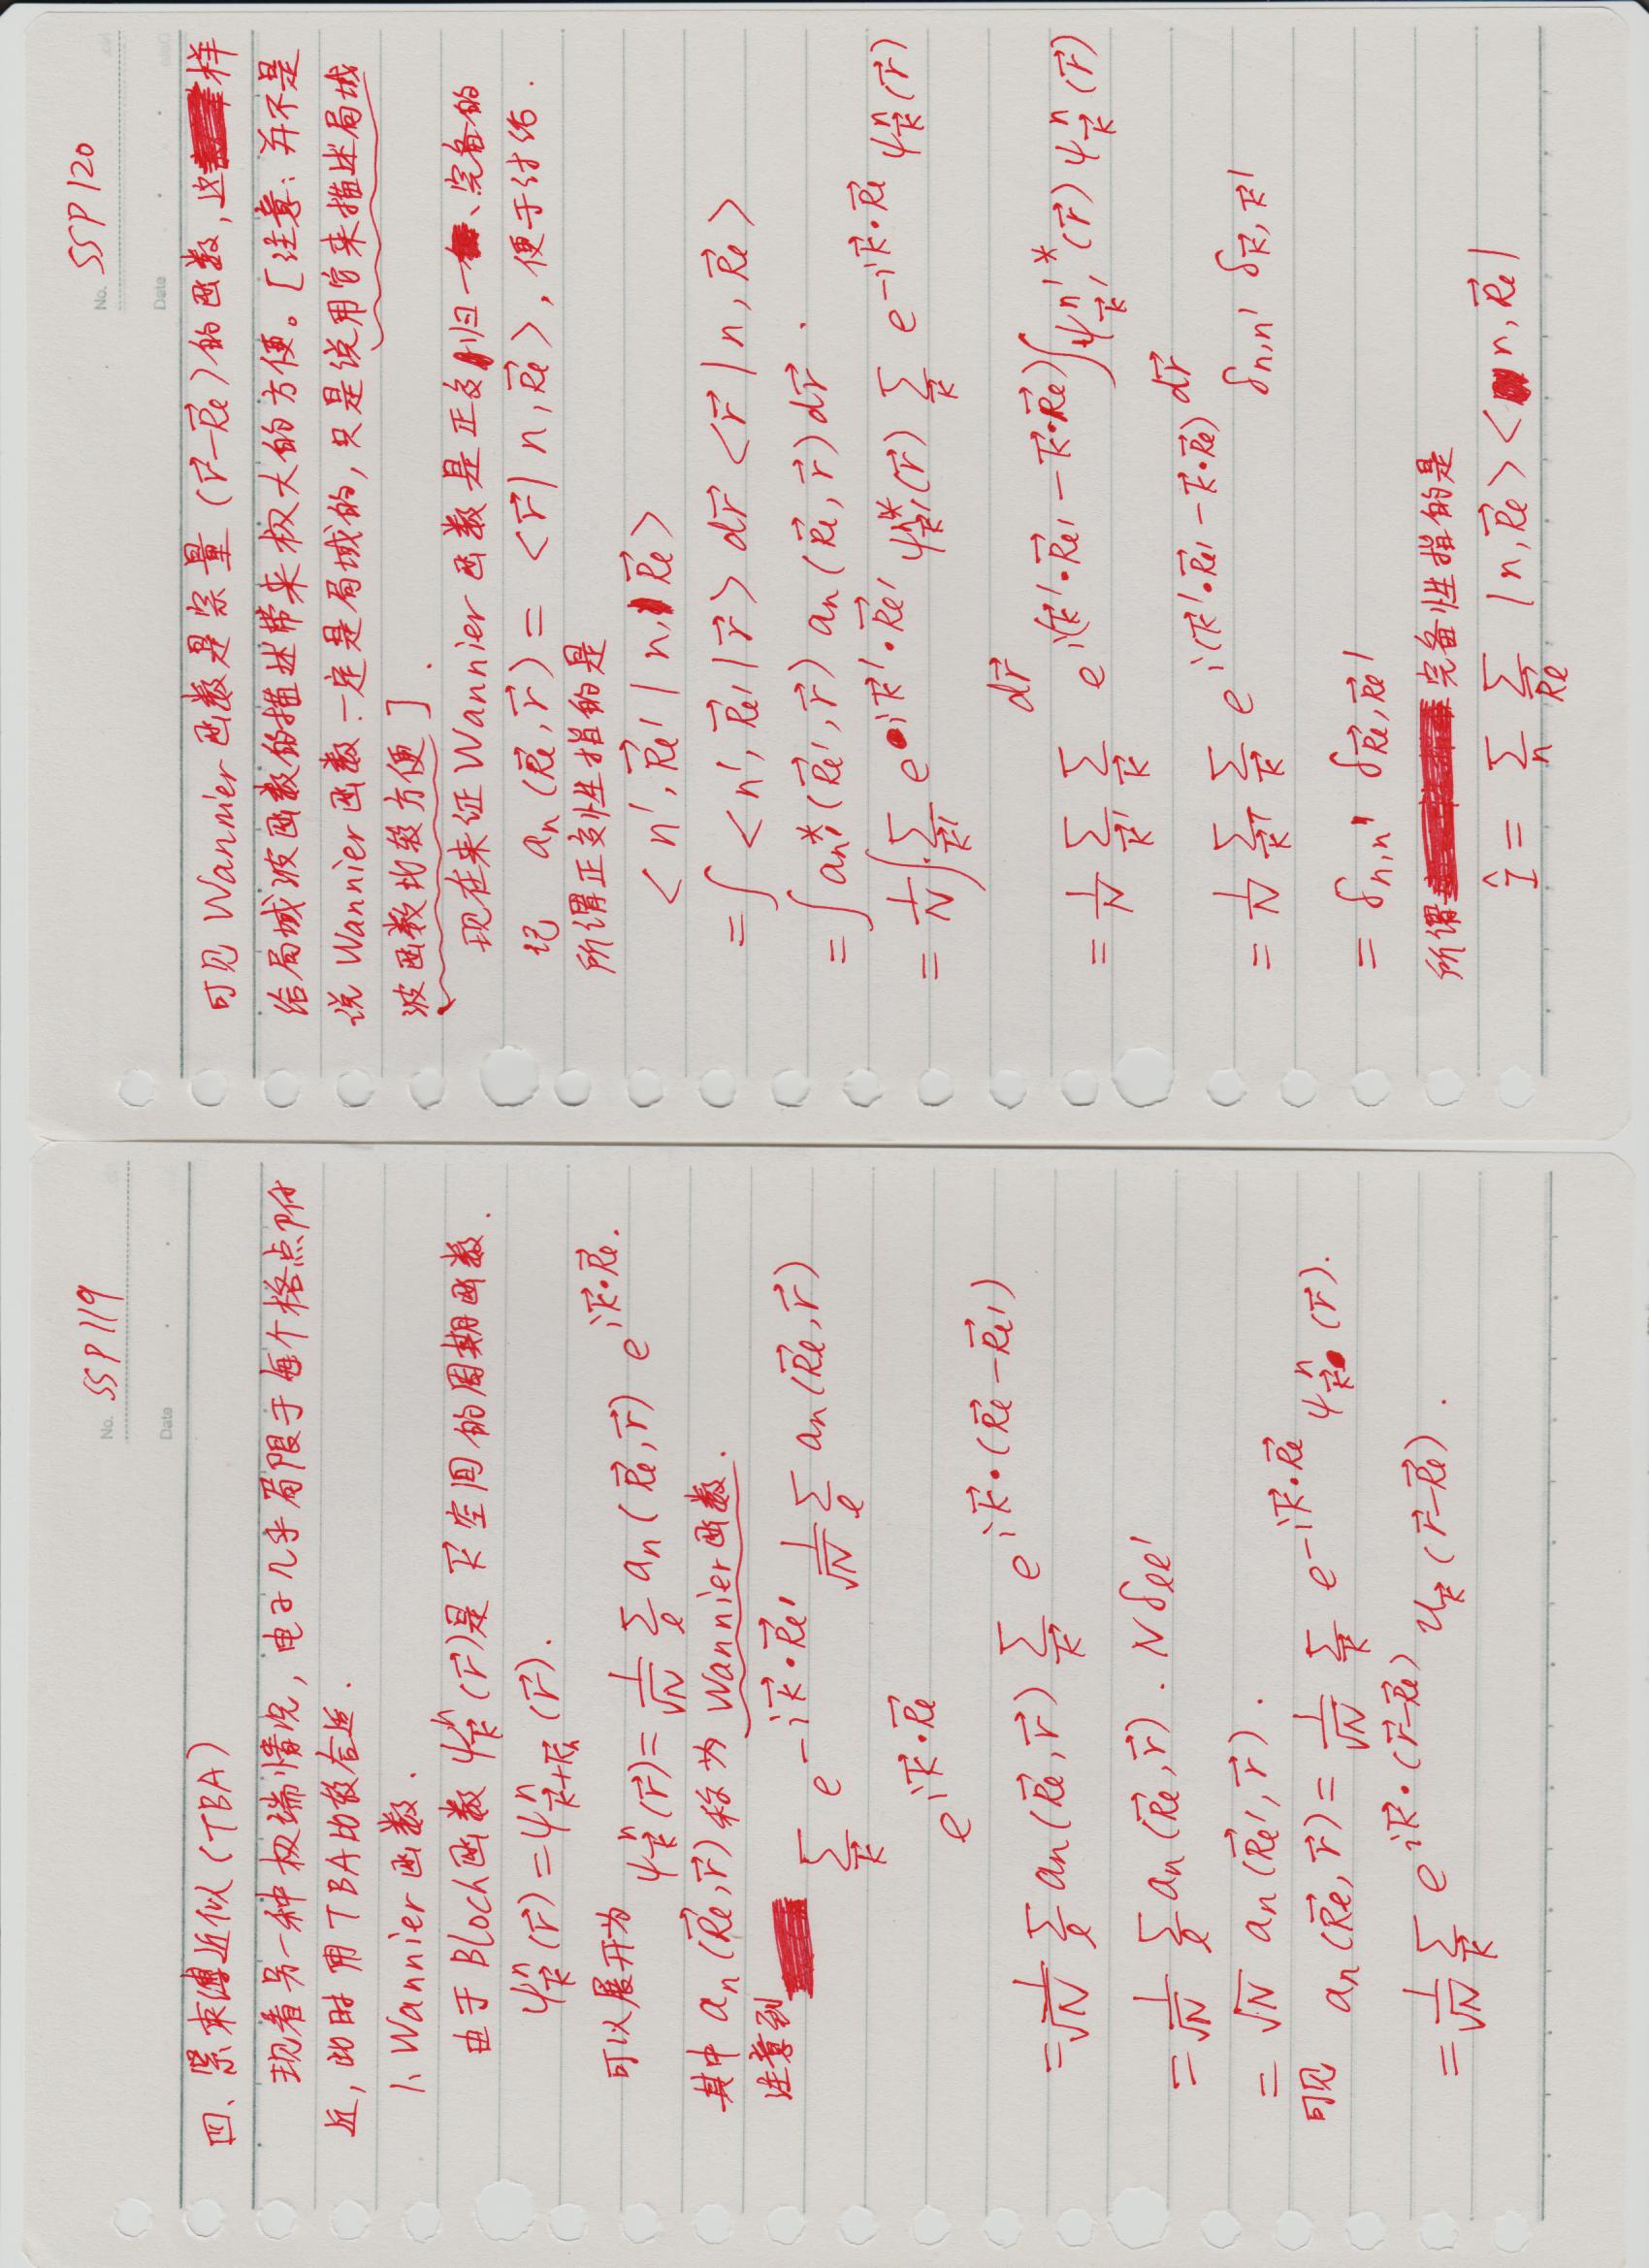 No. SSP 119
Date
四、紧束缚近似(TBA)
现看另一种极端情况,电子几乎局限于每个格点附
近,此时用TBA比较合适.
1、Wannier函数.
由于Bloch函数 ψ^n_{\vec{k}}(\vec{r})是 \vec{k} 空间的周期函数.
ψ^n_{\vec{k}}(\vec{r}) = ψ^n_{\vec{k}+\vec{K}_h}(\vec{r}).
可以展开为 ψ^n_{\vec{k}}(\vec{r}) = \frac{1}{\sqrt{N}} \sum_l a_n(\vec{R}_l, \vec{r}) e^{i\vec{k}·\vec{R}_l}.
其中 a_n(\vec{R}_l, \vec{r}) 称为 Wannier函数.
注意到 \sum_{\vec{k}} e^{-i\vec{k}·\vec{R}_{l'}} \frac{1}{\sqrt{N}} \sum_l a_n(\vec{R}_l, \vec{r})
e^{i\vec{k}·\vec{R}_l}
= \frac{1}{\sqrt{N}} \sum_l a_n(\vec{R}_l, \vec{r}) \sum_{\vec{k}} e^{i\vec{k}·(\vec{R}_l - \vec{R}_{l'})}
= \frac{1}{\sqrt{N}} \sum_l a_n(\vec{R}_l, \vec{r}) . N δ_{ll'}
= \sqrt{N} a_n(\vec{R}_{l'}, \vec{r}).
可见 a_n(\vec{R}_l, \vec{r}) = \frac{1}{\sqrt{N}} \sum_{\vec{k}} e^{-i\vec{k}·\vec{R}_l} ψ^n_{\vec{k}}(\vec{r}).
= \frac{1}{\sqrt{N}} \sum_{\vec{k}} e^{i\vec{k}·(\vec{r}-\vec{R}_l)} u_{\vec{k}}(\vec{r}-\vec{R}_l).
No. SSP 120
Date
可见 Wannier 函数是宗量 (\vec{r}-\vec{R}_l) 的函数,这样
给局域波函数的描述带来极大的方便。[注意:并不是
说 Wannier 函数一定是局域的,只是说用它来描述局域
波函数比较方便].
现在来证 Wannier 函数是正交归一、完备的
记 a_n(\vec{R}_l, \vec{r}) = <\vec{r}| n, \vec{R}_l>, 便于讨论.
所谓正交性指的是
<n', \vec{R}_{l'} | n, \vec{R}_l>
= ∫ <n', \vec{R}_{l'} | \vec{r}> d\vec{r} <\vec{r} | n, \vec{R}_l>
= ∫ a_{n'}^*(\vec{R}_{l'}, \vec{r}) a_n(\vec{R}_l, \vec{r}) d\vec{r}.
= \frac{1}{N} ∫ \sum_{\vec{k}'} e^{i\vec{k}'·\vec{R}_{l'}} ψ^{n'*}_{\vec{k}'}(\vec{r}) \sum_{\vec{k}} e^{-i\vec{k}·\vec{R}_l} ψ^n_{\vec{k}}(\vec{r})
d\vec{r}
= \frac{1}{N} \sum_{\vec{k}'} \sum_{\vec{k}} e^{i(\vec{k}'·\vec{R}_{l'} - \vec{k}·\vec{R}_l)} ∫ ψ^{n'*}_{\vec{k}'}(\vec{r}) ψ^n_{\vec{k}}(\vec{r})
d\vec{r}
= \frac{1}{N} \sum_{\vec{k}'} \sum_{\vec{k}} e^{i(\vec{k}'·\vec{R}_{l'} - \vec{k}·\vec{R}_l)} δ_{n,n'} δ_{\vec{k},\vec{k}'}
= δ_{n,n'} δ_{\vec{R}_l,\vec{R}_{l'}}
所谓完备性指的是
\hat{I} = \sum_n \sum_{\vec{R}_l} |n, \vec{R}_l><n, \vec{R}_l|